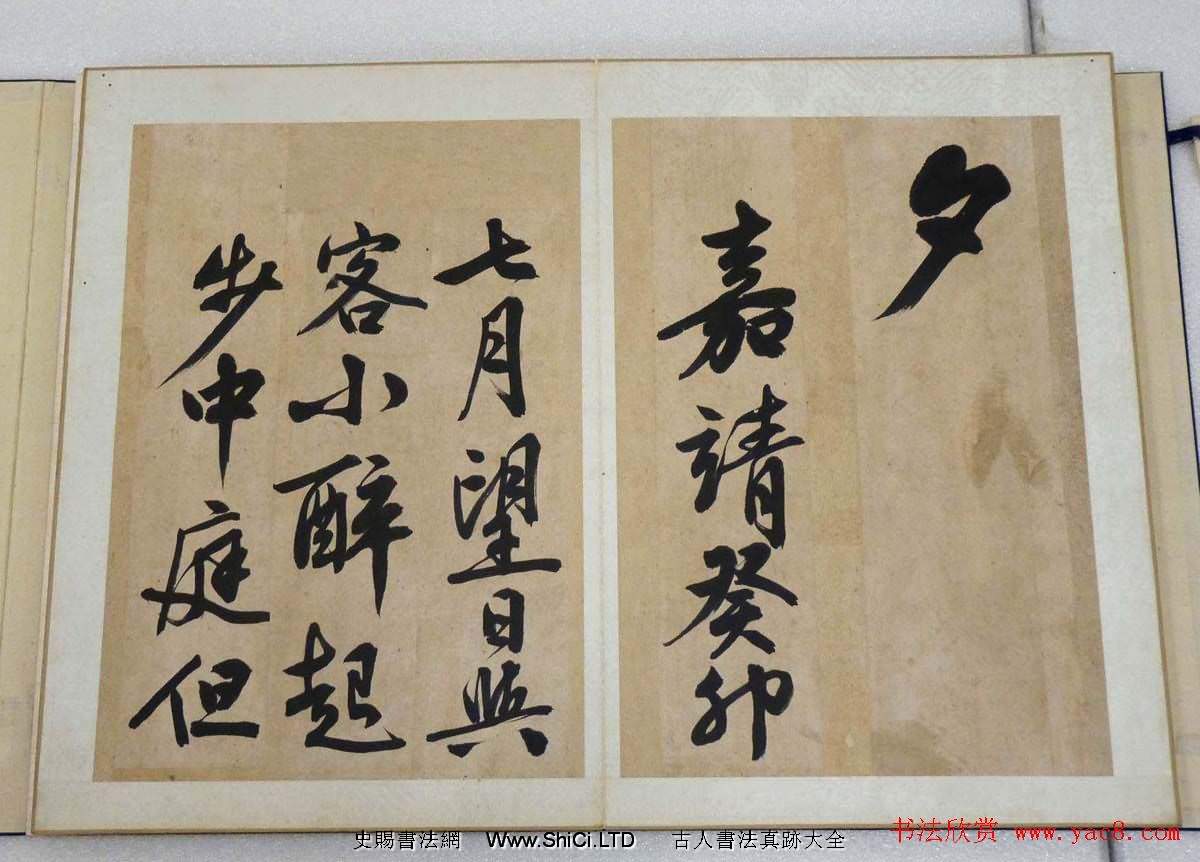 夕
嘉靖癸卯
七月望日與
客小醉起
步中庭但
史賜書法網 Www.ShiCi.LTD 古人書法真跡大全
书法欣赏 www.yac8.com